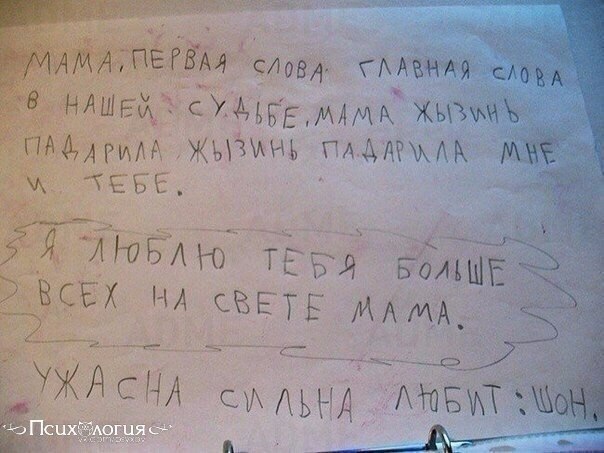 МАМА, ПЕРВАЯ СЛОВА ГЛАВНАЯ СЛОВА
В НАШЕЙ СУДЬБЕ, МАМА ЖЫЗИНЬ
ПАДАРИЛА ЖЫЗИНЬ ПАДАРИЛА МНЕ
И ТЕБЕ.
Я ЛЮБЛЮ ТЕБЯ БОЛЬШЕ
ВСЕХ НА СВЕТЕ МАМА.
УЖАСНА СИЛЬНА ЛЮБИТ: ШОН.
Психология